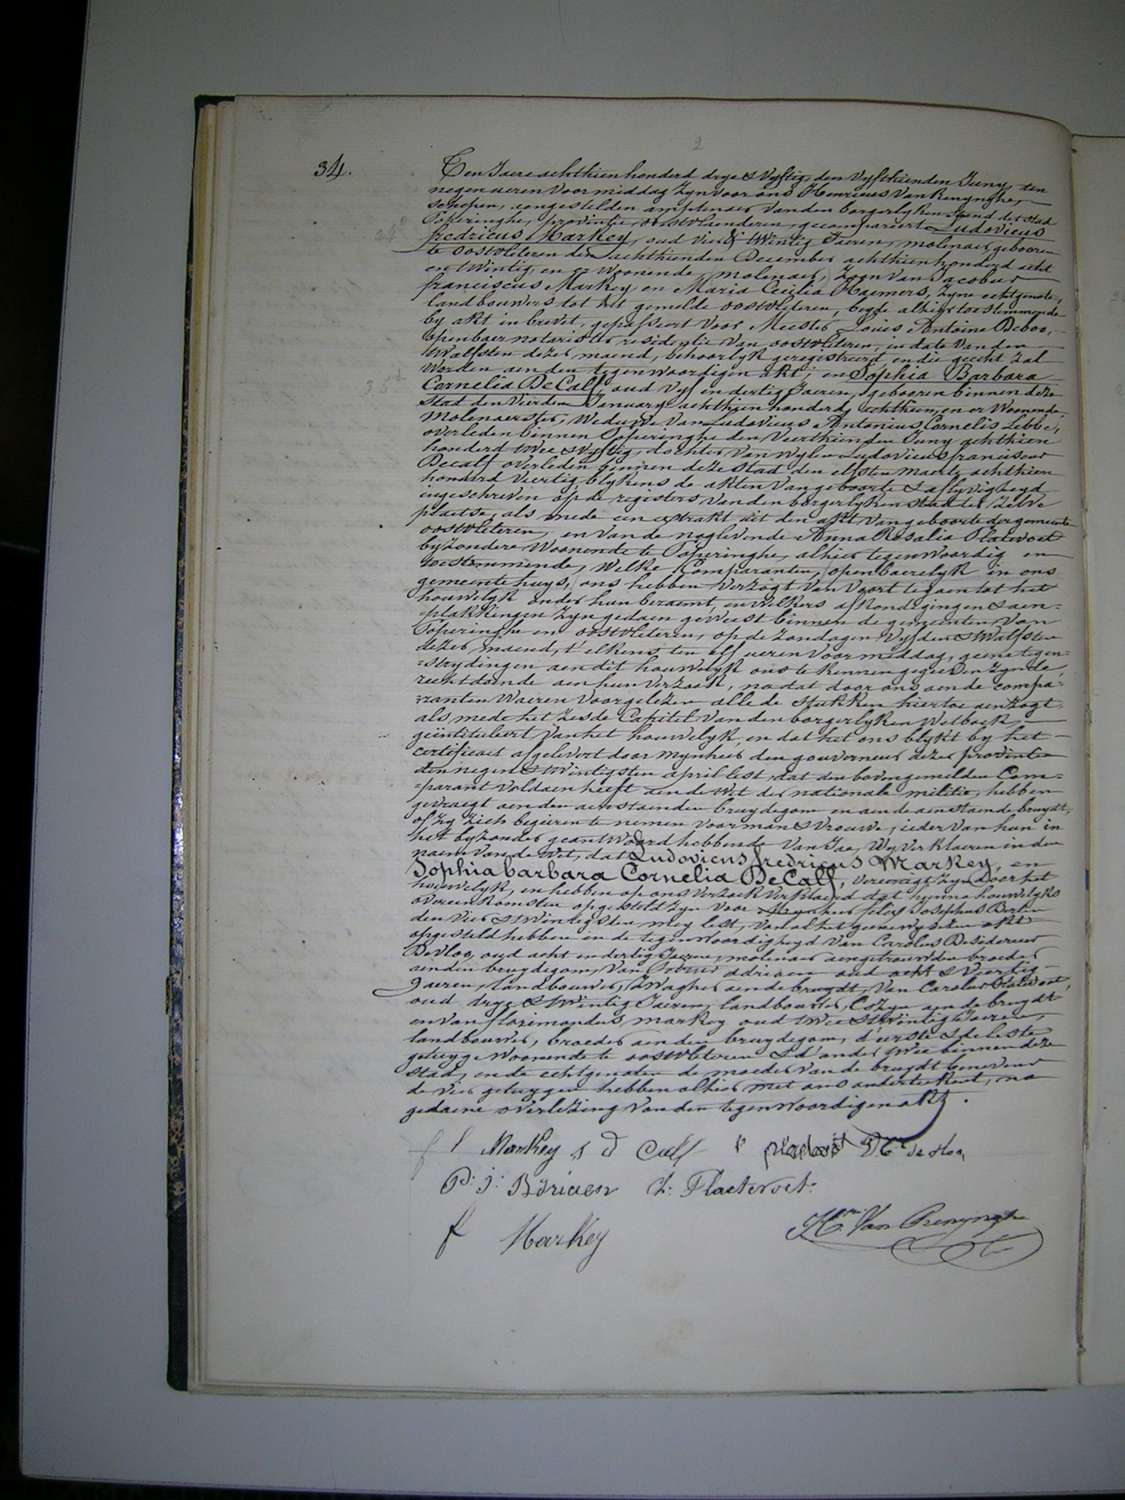 2
34.
Ten Jaere achthien honderd drye & vyftig, den vyfthienden Juny, ten
negen ueren voormiddag zyn voor ons Henricus Van Renynghe,
schepen, aengestelden amptenaer van den borgerlyken stand der stad
Poperinghe, provintie westvlaenderen, gecompareert Ludovicus
fredricus Markey, oud vier & twintig Jaeren, molenaer, gebooren
te oostvleteren den achthienden December achthien honderd acht
en twintig en er woonende, molenaer, zoon van Jacobus
franciscus Markey en Maria Cecilia Haemers, zyne echtgenote,
landbouwers tot het gemelde oostvleteren, beyde alhier toestemmende
by akt in brevet, gepasseert voor Meester Louis Antoine Deboo,
openbaer notaris ter residentie van oostvleteren, in date van den
twalfsten dezer maend, behoorlyk geregistreerd en die gehecht zal
worden aen den tegenwoordigen akt; en Sophia Barbara
Cornelia DeCalf, oud vyf en dertig Jaeren, gebooren binnen deze
stad den vierden January achthien honderd achthien, en er woonende,
molenaerster, Weduwe van Ludovicus Antonius Cornelis Lebbe,
overleden binnen Poperinghe den veerthienden Juny achthien
honderd twee & vyftig, dochter van wylen Ludovicus franciscus
Decalf overleden binnen deze stad den elfsten maerte achthien
honderd veertig, blykens de akten van geboorte & aflyvigheyd
ingeschreven op de registers van den borgerlyken stand der zelve
plaetse, als mede een extrakt uit den akt van geboorte der gemeente
oostvleteren, en van de nog levende Anna Rosalia Platevoet
byzondere woonende te Poperinghe, alhier tegenwoordig en
toestemmende, welke Comparanten, openbaerelyk in ons
gemeente huys, ons hebben verzogt van voort te gaen tot het
houwelyk onder hun beraemt, en welkers afkondigingen & aen-
plakkingen zyn gedaen geweest binnen de gemeenten van
Poperinghe en oostvleteren, op de zondagen vyfden & twalfsten
dezer maend, t'elkens ten elf ueren voormiddag, geene tegen-
strydingen aen dit houwelyk ons te kennen gegeven zynde,
recht doende aen hun verzoek, na dat door ons aen de compa-
ranten waeren voorgelezen alle de stukken hiertoe aenzogt
als mede het zesde Capitel van den borgerlyken wetboek
geïntituleert van het houwelyk, en dat het ons blykt by het
certificaet afgelevert door Mynheer den gouverneur dezer provintie
den negen & twintigsten april lest, dat den bovengemelden Com-
parant voldaen heeft aen de wet der nationale militie, hebben
gevraegt aen den aenstaenden bruydegom en aen de aenstaende bruydt,
of zy zich begeeren te nemen voor man & vrouwe, ieder van hun in
het byzonder geantwoord hebbende van Jae, wy verklaeren in den
naem van de wet, dat Ludovicus fredricus Markey, en
Sophia barbara Cornelia DeCalf, vereenigt zyn door het
houwelyk, en hebben op ons verzoek verklaerd dat hunne houwelyks
overeenkomsten opgesteld zyn voor Meester Josephus Berten
den vier & twintigsten mey lest, van al het gene wy dezen akt
opgesteld hebben in de tegenwoordigheyd van Carolus Desiderius
DeVloo, oud acht en dertig Jaeren, molenaer aengetrouwden broeder
aen den bruydegom, Van Petrus adriaen oud acht & veertig
Jaeren, landbouwer, zwagher aen de bruydt, van Carolus Platevoet,
oud drye & twintig Jaeren, landbouwer, Cozyn aen de bruydt
en van florimondus markey oud twee & twintig Jaeren,
landbouwer, broeder aen den bruydegom, d'eerste & de leste
getuyge woonende te oostvleteren & d'ander twee binnen deze
stad, en de echtgenoten de moeder van de bruydt benevens
de vier getuygen hebben alhier met ons onderteekent, na
gedaene overlezing van den tegenwoordigen akt.
f l Markey s d Calf r platevoet
P: J: Adriaen C: Platevoet
f Markey
Hri Van Renynghe